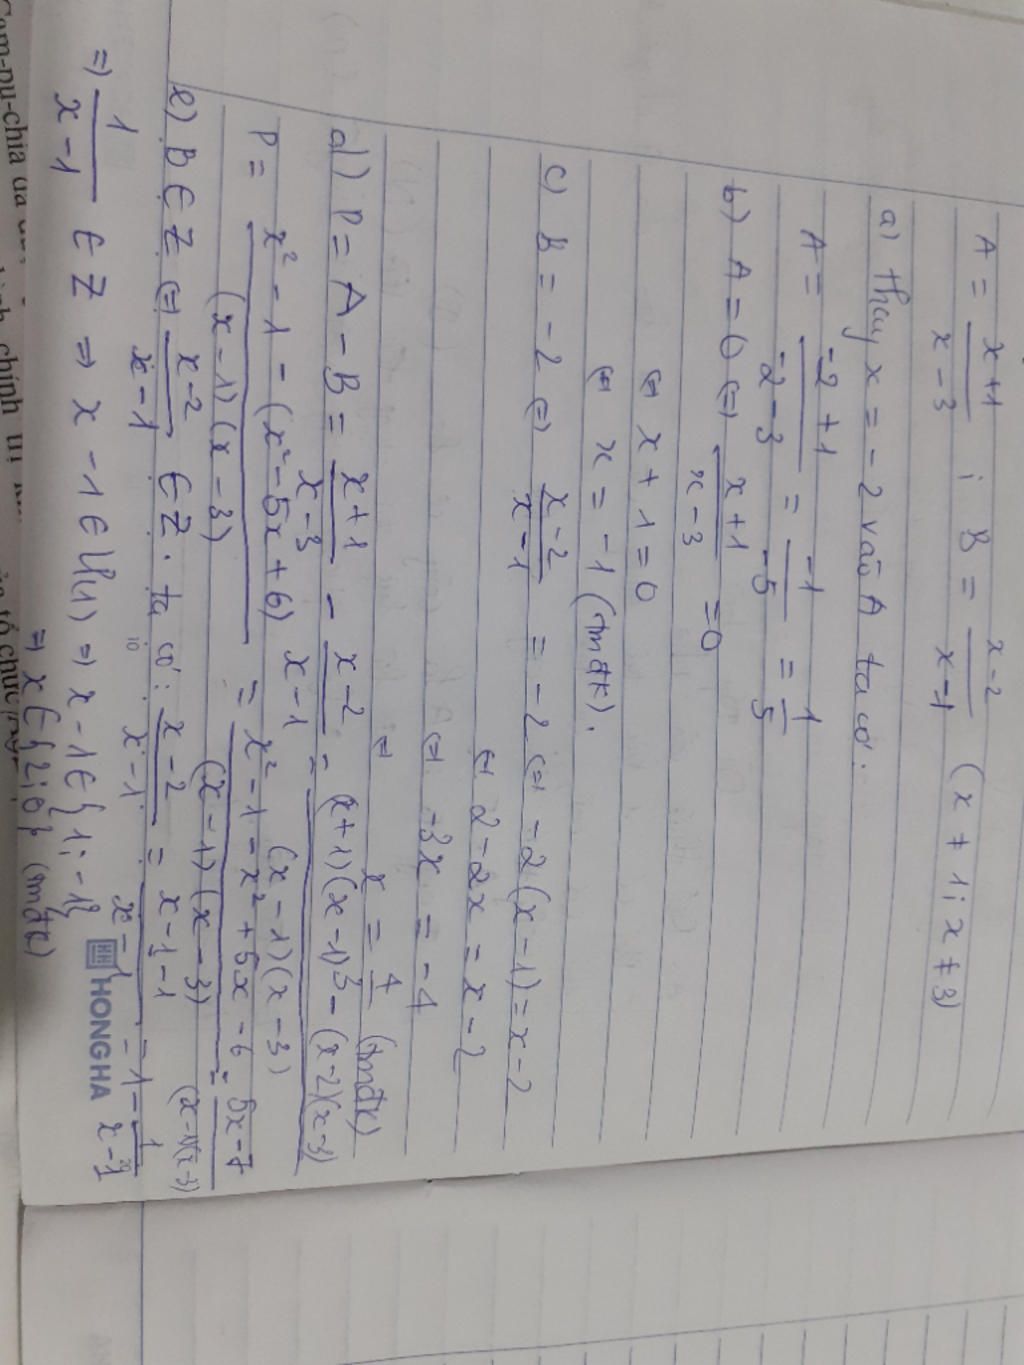 A = x+1/x-3 ; B = x-2/x-1 (x ≠ 1; x ≠ 3)
a) Thay x = -2 vào A ta có:
A = -2+1/-2-3 = -1/-5 = 1/5
b) A = 0 (=) x+1/x-3 = 0
(=) x + 1 = 0
(=) x = -1 (tmđk).
c) B = -2 (=) x-2/x-1 = -2 (=) -2(x-1) = x-2
(=) 2-2x = x-2
(=) -3x = -4
(=) x = 4/3 (tmđk)
d) P = A - B = x+1/x-3 - x-2/x-1 = (x+1)(x-1) - (x-2)(x-3)/(x-1)(x-3)
P = x² - 1 - (x² - 5x + 6)/(x-1)(x-3) = x² - 1 - x² + 5x - 6/(x-1)(x-3) = 5x-7/(x-1)(x-3)
e) B ∈ Z (=) x-2/x-1 ∈ Z. ta có: x-2/x-1 = x-1-1/x-1 = 1 - 1/x-1
=> 1/x-1 ∈ Z => x-1 ∈ Ư(1) => x-1 ∈ {1; -1}
=> x ∈ {2; 0} (tmđk)
HONGHA